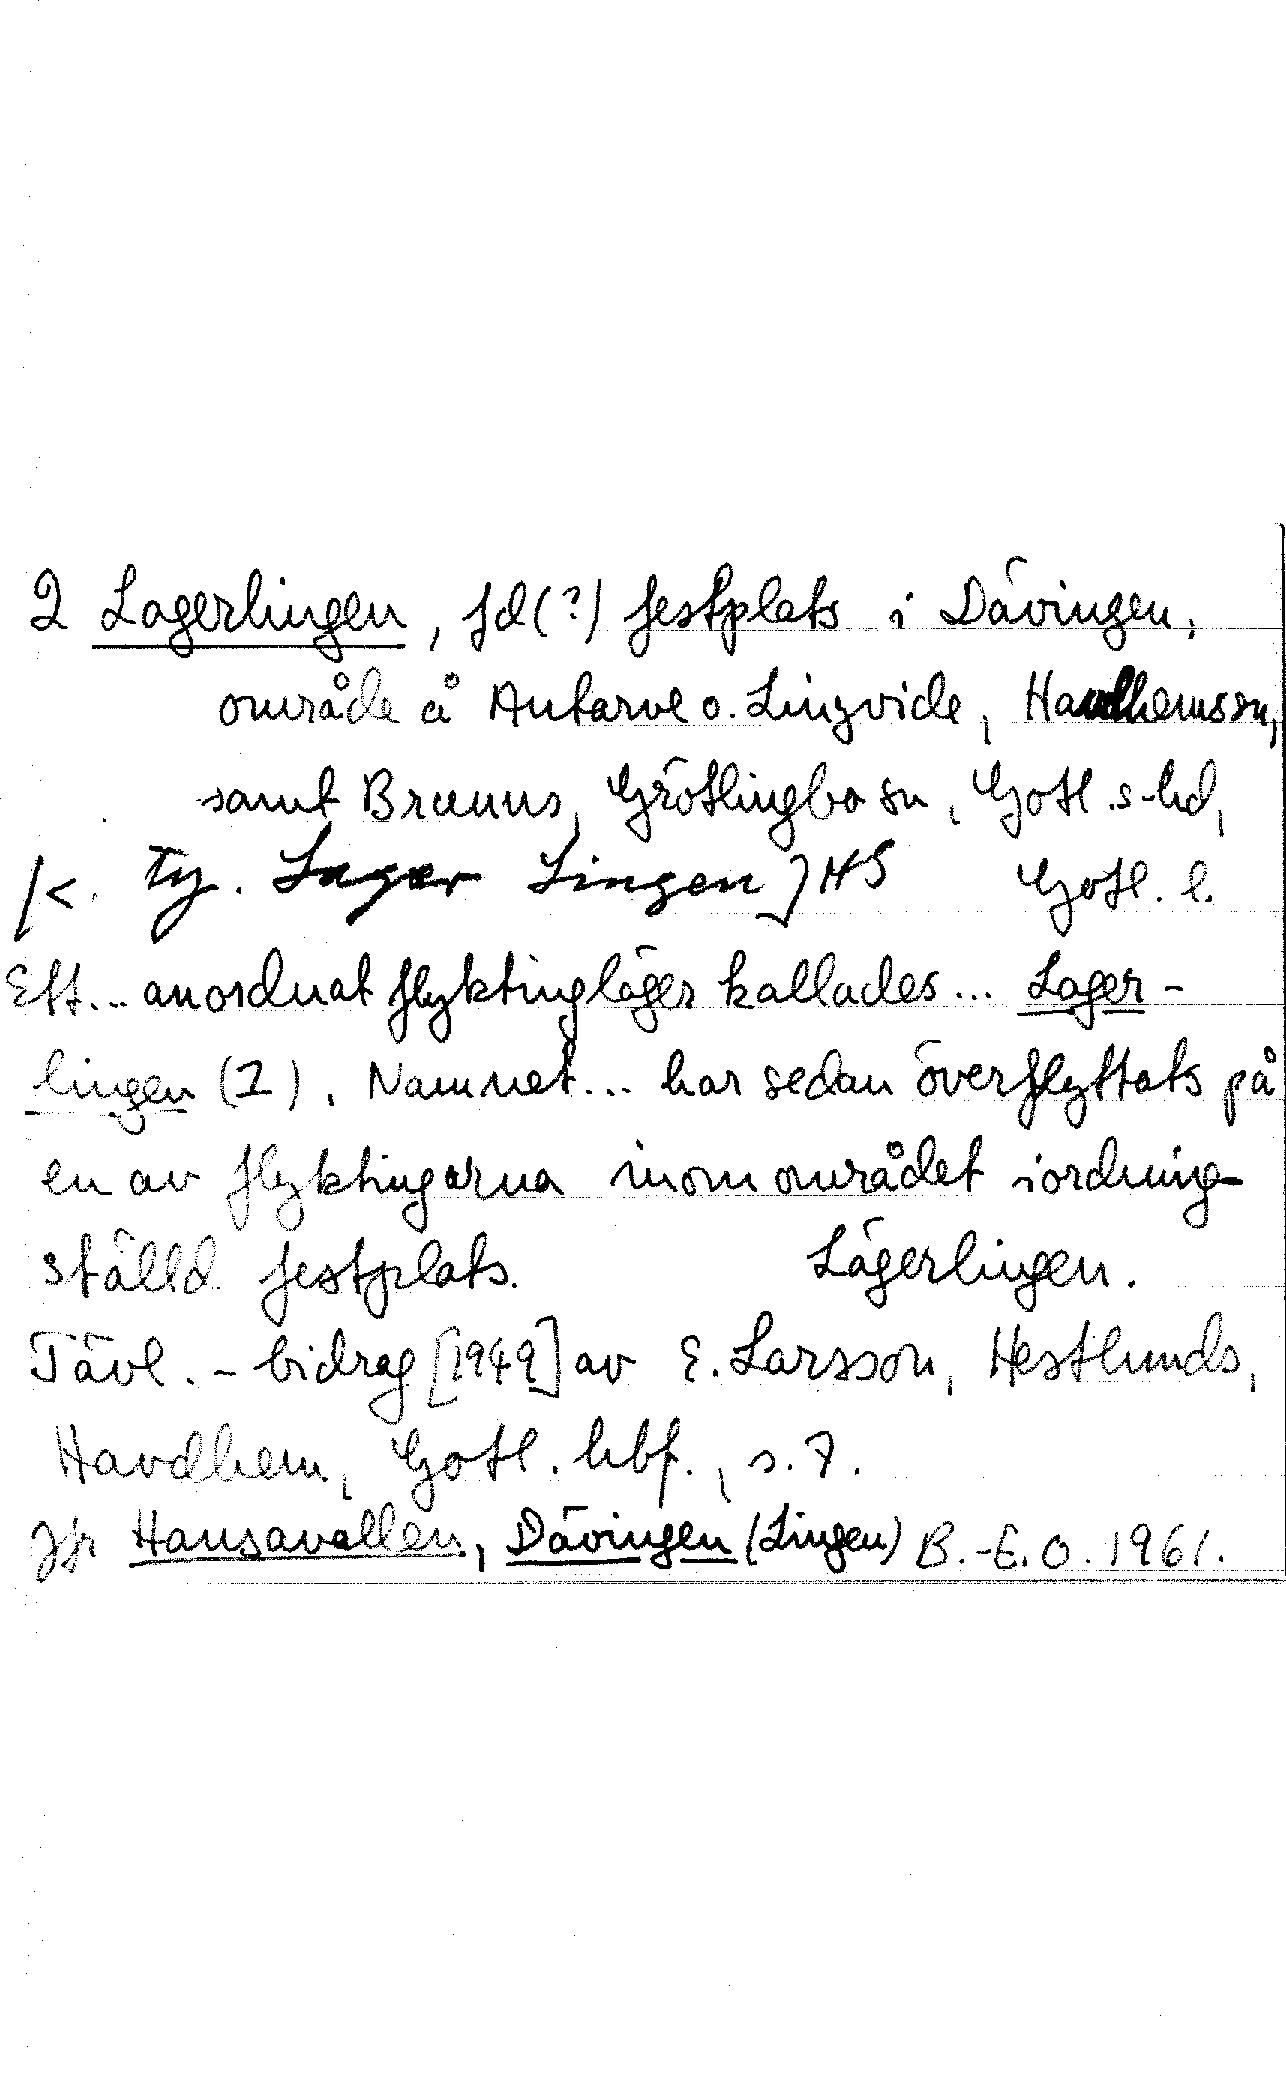 2 Lagerlingen, fd(?) festplats i Dävingen,
område å Autarve o. Lingvide, Havdhemssn,
samt Brunns, Grötlingbo sn, Gotl.s hd,
[<. ty. Lager Lingen] HS Gotl. l.
Ett... anordnat flyktingläger kallades... Lager-
lingen (1). Namnet... har sedan överflyttats på
en av flyktingarna inom området iordning-
ställd festplats. Lägerlingen.
Tävl.-bidrag [1949] av E. Larsson, Hestlunds,
Havdhem, Gotl. hbf., s. 7.
Jfr Hansavallen, Dävingen (Lingen) B.-E.O. 1961.